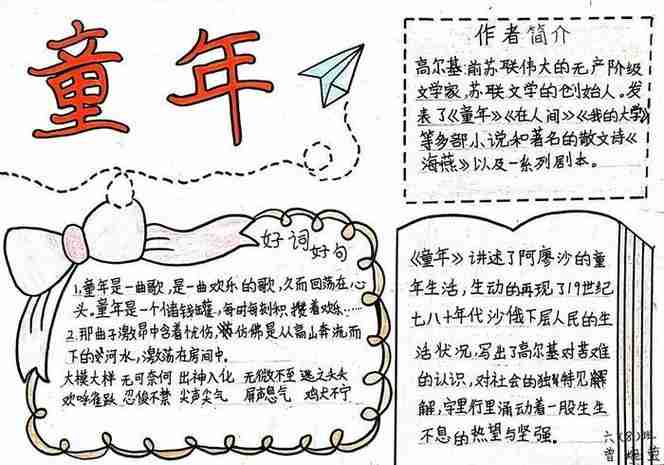 童年
作者简介
高尔基:前苏联伟大的无产阶级
文学家,苏联文学的创始人。发
表了《童年》《在人间》《我的大学》
等多部小说和著名的散文诗《
海燕》以及一系列剧本。
好词
好句
1.童年是一曲歌,是一曲欢乐的歌,久而回荡在心
头。童年是一个储钱罐,每时每刻积攒着欢乐……
2.那曲子激昂中含着忧伤,仿佛是从高山奔流而
下的河水,激荡在房间中。
大模大样 无可奈何 出神入化 无微不至 逃之夭夭
欢呼雀跃 忍俊不禁 尖声尖气 屏声息气 鸡犬不宁
《童年》讲述了阿廖沙的童
年生活,生动的再现了19世纪
七八十年代沙俄下层人民的生
活状况,写出了高尔基对苦难
的认识,对社会的独特见解
解,字里行里涌动着一股生生
不息的热望与坚强。
六(8)班
曾